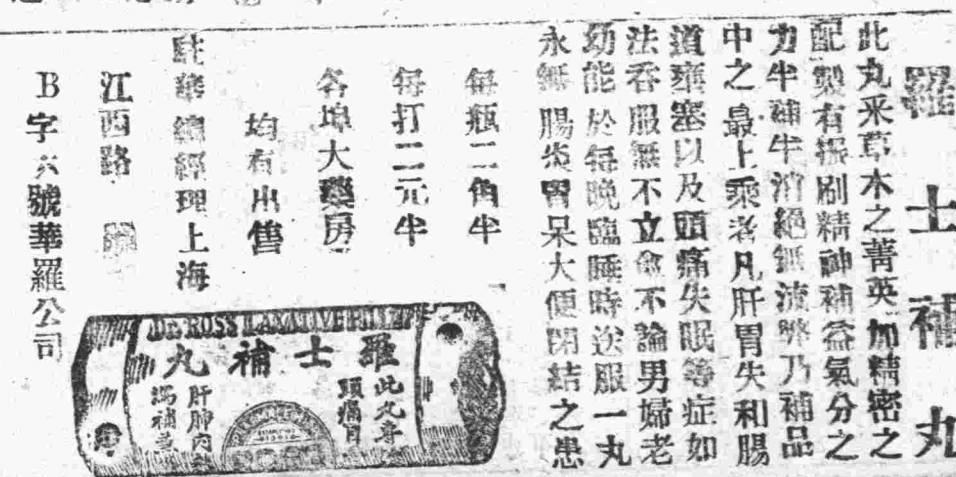 羅士補丸
此丸采草木之菁英加精密之
配製有振刷精神補益氣分之
力半補半消絕無流弊乃補品
中之最上乘者凡肝胃失和腸
道壅塞以及頭痛失眠等症如
法吞服無不立愈不論男婦老
幼能於每晚臨睡時送服一丸
永無腸炎胃呆大便閉結之患
每瓶二角半
每打二元半
各埠大藥房
均有出售
駐華總經理上海
江西路
B字六號華羅公司
DR. ROSS LAXATIVE PILLS
羅士補丸
此丸專
頭痛
肝肺內
瀉補兼